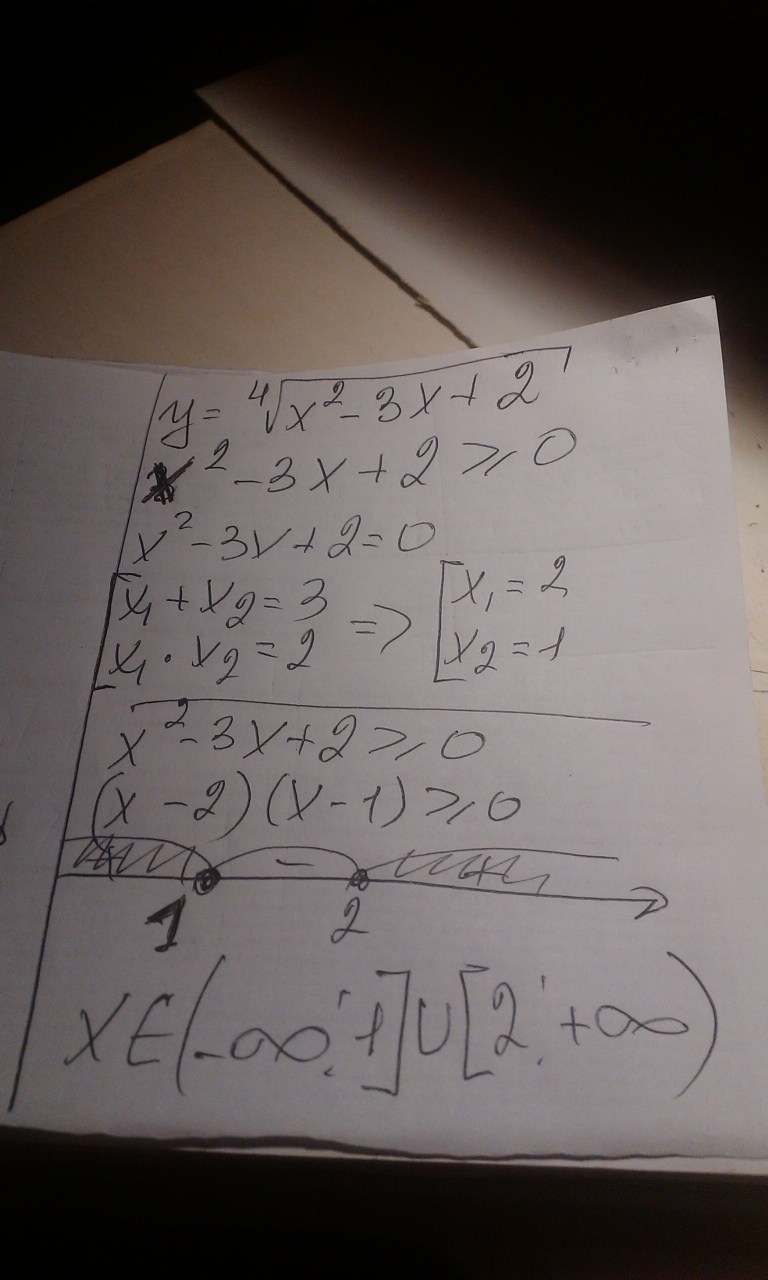 y = ⁴√(x² - 3x + 2)
x² - 3x + 2 ≥ 0
x² - 3x + 2 = 0
[x₁ + x₂ = 3
x₁ · x₂ = 2 => [x₁ = 2
x₂ = 1
x² - 3x + 2 ≥ 0
(x - 2)(x - 1) ≥ 0
-
1 2
x∈(-∞; 1]∪[2; +∞)